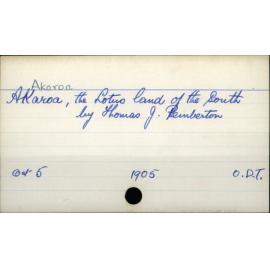 Akaroa
AKaroa, the Lotus land of the South
by Thomas J. Pemberton
Oct 5 1905 O.D.T.